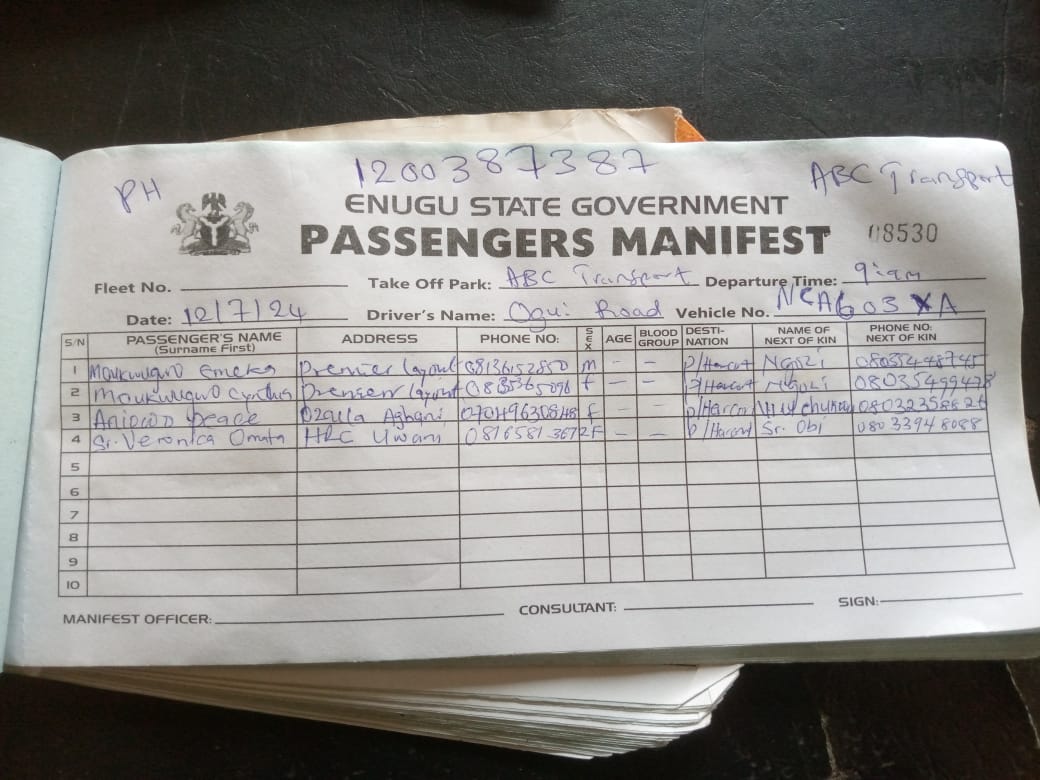 PH 1200387387 ABC Transport
ENUGU STATE GOVERNMENT
PASSENGERS MANIFEST 08530
Fleet No. Take Off Park: ABC Transport Departure Time: 9:am
Date: 12/7/24 Driver's Name: Ogui Road Vehicle No. NCA603XA
S/N PASSENGER'S NAME (Surname First) ADDRESS PHONE NO: SEX AGE BLOOD GROUP DESTI-NATION NAME OF NEXT OF KIN PHONE NO: NEXT OF KIN
1 Emeka Premier layout 08136152850 m — — P/Harcort Ngozi 08035448745
2 Premier layout f — — P/Harcort Ngozi 08035499478
3 Peace Ozalla Agbani 07049630848 f — — P/Harcort 08032358826
4 Sr. Veronica Omata HRC Uwani 08165813672 F — — P/Harcort Sr. Obi 08033948088
5
6
7
8
9
10
MANIFEST OFFICER: CONSULTANT: SIGN: